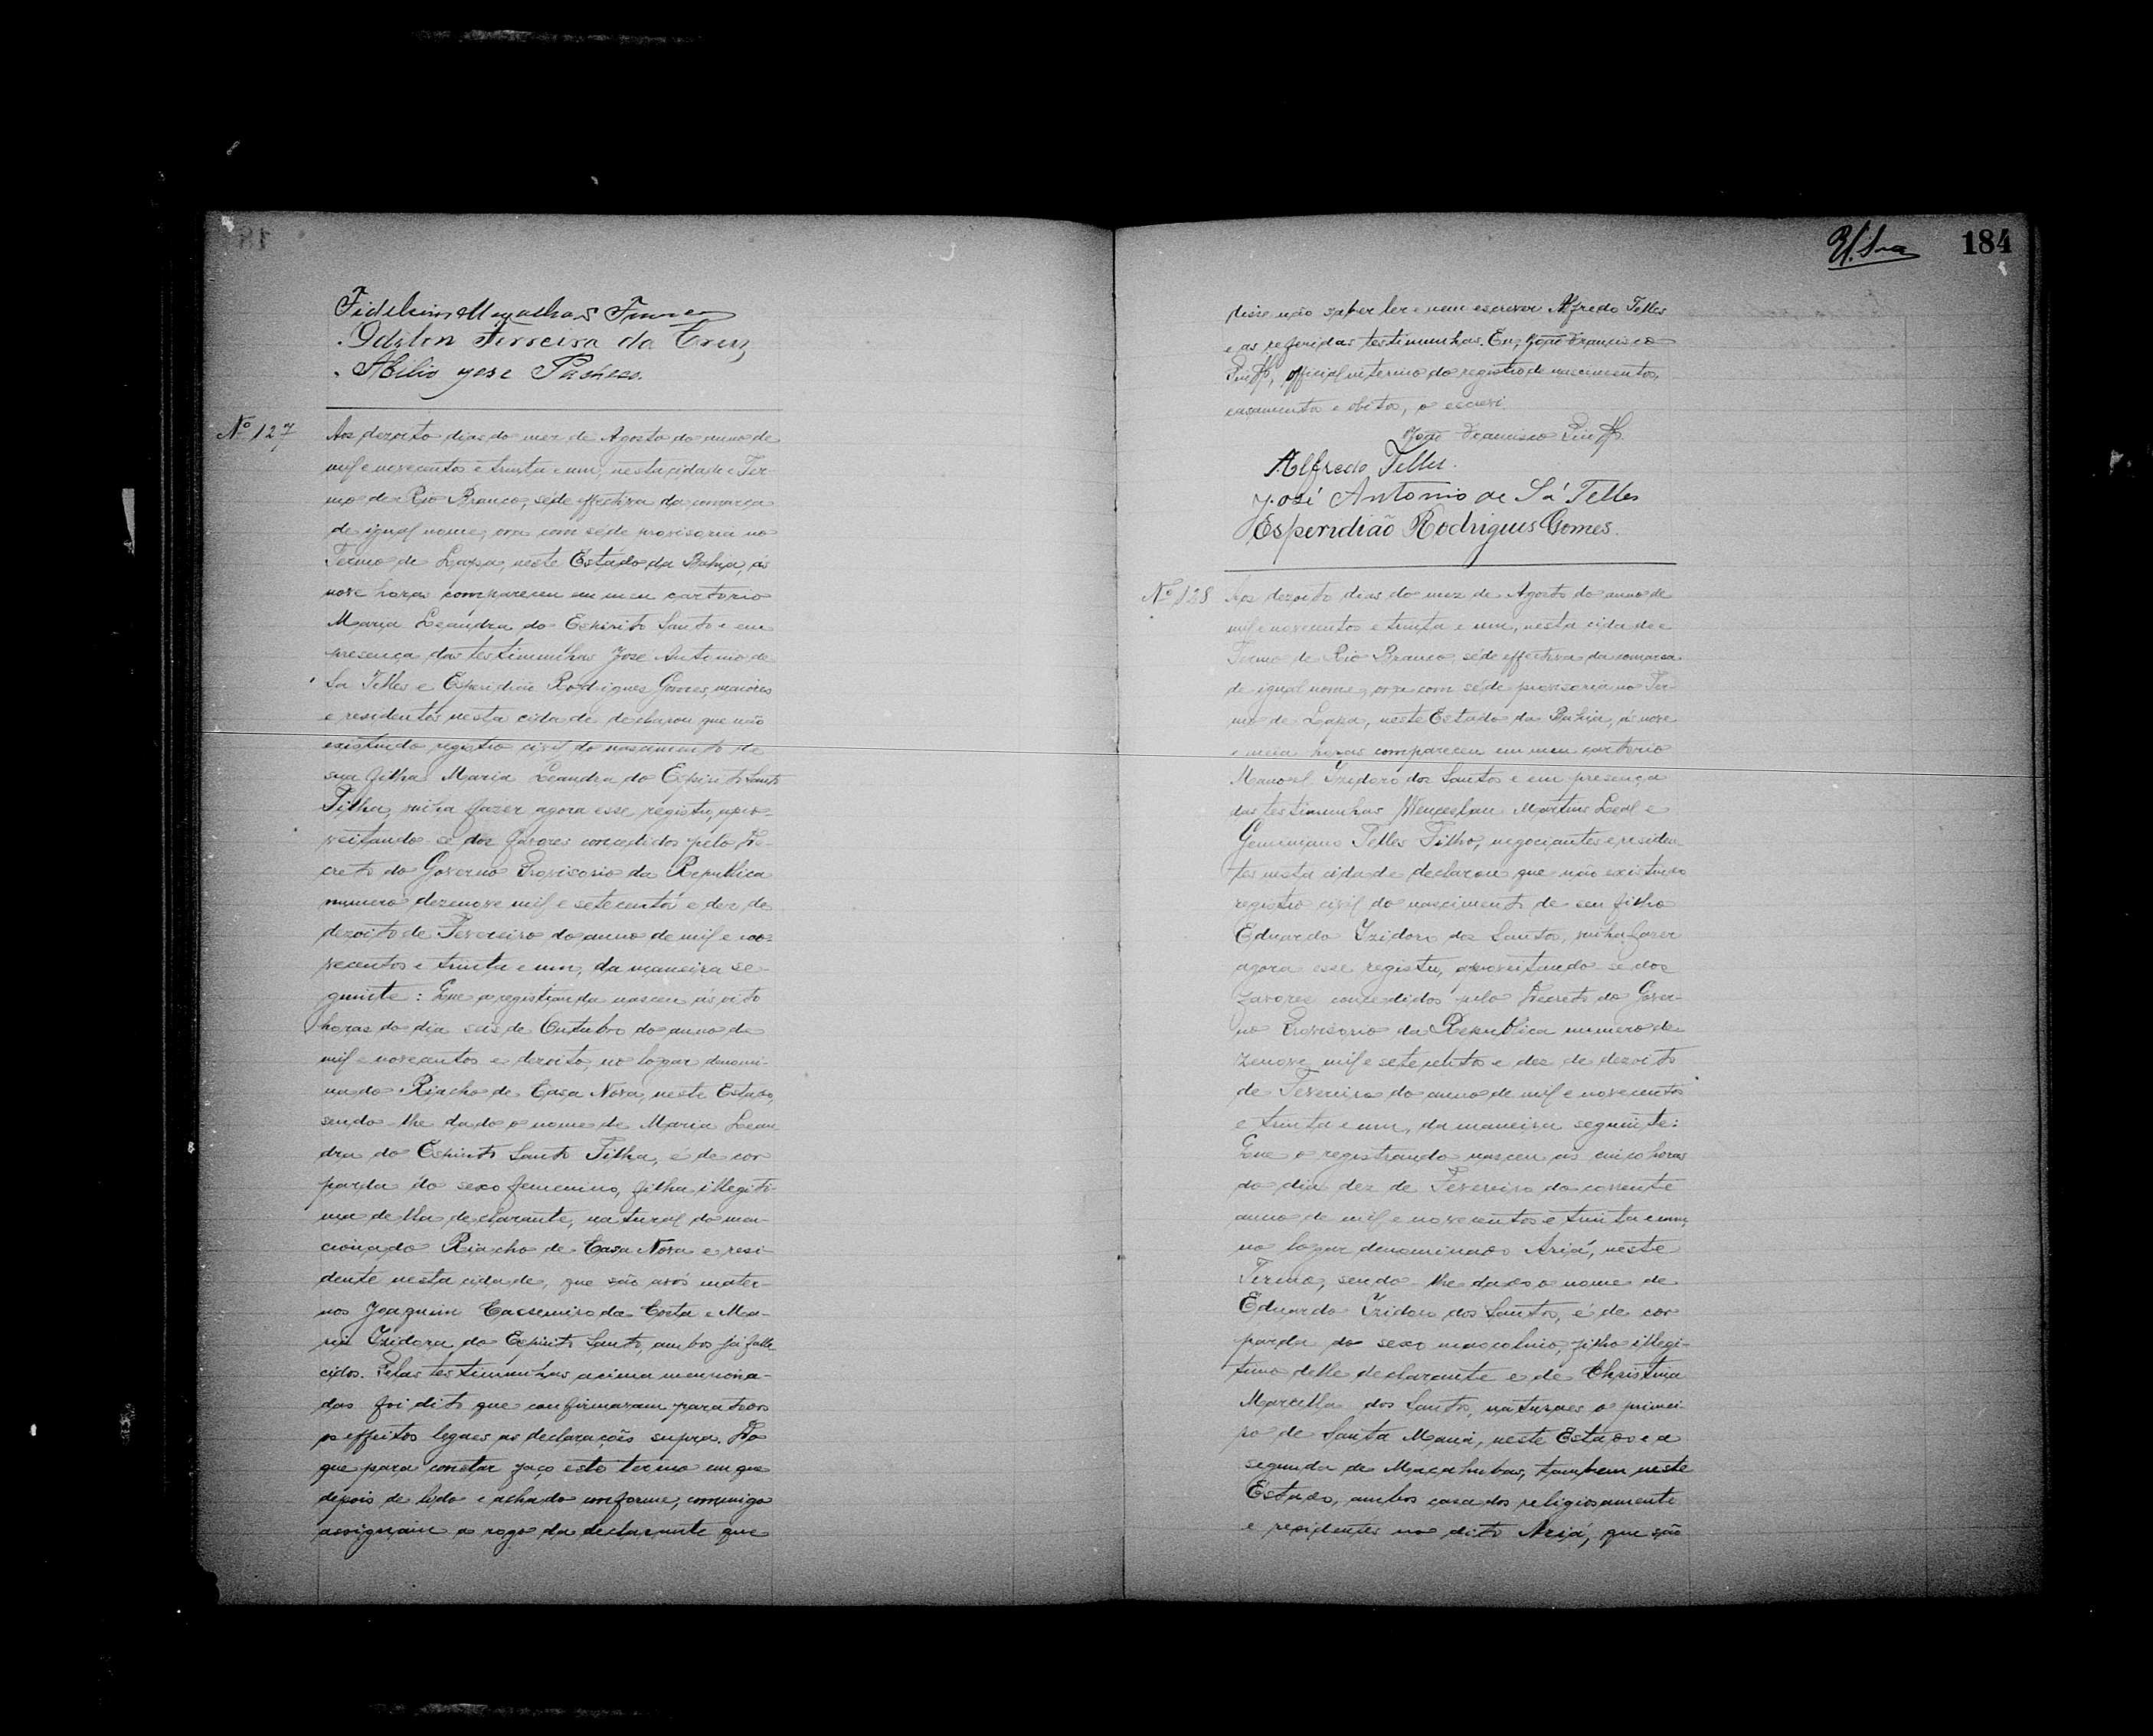 Magalhães
Odilon Ferreira da Cruz
Abilio José Pacheco.
Nº 127
Aos dezoito dias do mez de Agosto do anno de
mil e novecentos e trinta e um, nesta cidade e Ter-
mo de Rio Branco, séde effectiva da comarca
de igual nome, ora com séde provisoria no
Termo de Lapa, neste Estado da Bahia, ás
nove horas compareceu em meu cartorio
Maria Leandra do Espirito Santo e em
presença das testimunhas José Antonio de
Sá Telles e Esperidião Rodrigues Gomes, maiores
e residentes nesta cidade declarou que não
existindo registro civil do nascimento de
sua filha Maria Leandra do Espirito Santo
Filha, vinha fazer agora esse registro, apro-
veitando-se dos favores concedidos pelo De-
creto do Governo Provisorio da Republica
numero dezenove mil e setecentos e dez de
dezoito de Fevereiro do anno de mil e no-
vecentos e trinta e um, da maneira se-
guinte: Que a registranda nasceu ás oito
horas do dia seis de Outubro do anno de
mil e novecentos e dezoito, no logar denomi-
nado Riacho de Casa Nova, neste Estado,
sendo-lhe dado o nome de Maria Lean
dra do Espirito Santo Filha, é de cor
parda do sexo femenino, filha illegiti-
ma della declarante, natural do men-
cionado Riacho de Casa Nova e resi-
dente nesta cidade, que são avós mater-
nos Joaquim Cassemiro da Costa e Ma-
ria Izidora do Espirito Santo, ambos já falle
cidos. Pelas testimunhas acima menciona-
das foi dito que confirmavam para todos
os effeitos legaes as declarações supra. Do
que para constar faço este termo em que
depois de lido e achado conforme, commigo
assignam a rogo da declarante que
184
disse não saber ler e nem escrever Alfredo Telles
e as referidas testimunhas. Eu, João Francisco
official interino do registro de nascimentos,
casamentos e obitos, o escrevi.
João Francisco
Alfredo Telles.
José Antonio de Sá Telles
Esperidião Rodrigues Gomes.
Nº 128
Aos dezoito dias do mez de Agosto do anno de
mil e novecentos e trinta e um, nesta cidade e
Termo de Rio Branco, séde effectiva da comarca
de igual nome, ora com séde provisoria no Ter-
mo de Lapa, neste Estado da Bahia, ás nove
e meia horas compareceu em meu cartorio
Manoel Izidoro dos Santos e em presença
das testimunhas Wenceslau Martins Leal e
Geminiano Telles Filho, negociantes e residen
tes nesta cidade declarou que não existindo
registro civil do nascimento de seu filho
Eduardo Izidoro dos Santos, vinha fazer
agora esse registro, aproveitando-se dos
favores concedidos pelo Decreto do Gover-
no Provisorio da Republica numero de-
zenove mil e setecentos e dez de dezoito
de Fevereiro do anno de mil e novecentos
e trinta e um, da maneira seguinte:
Que o registrando nasceu as cinco horas
do dia dez de Fevereiro do corrente
anno de mil e novecentos e trinta e um,
no logar denominado Ariá, neste
Termo, sendo-lhe dado o nome de
Eduardo Izidoro dos Santos, é de cor
parda do sexo mascolino, filho illegi-
timo delle declarante e de Christina
Marcella dos Santos, naturaes o primei-
ro de Santa Maria, neste Estado e a
segunda de Macahubas, tambem neste
Estado, ambos casados religiosamente
e residentes no dito Ariá, que são